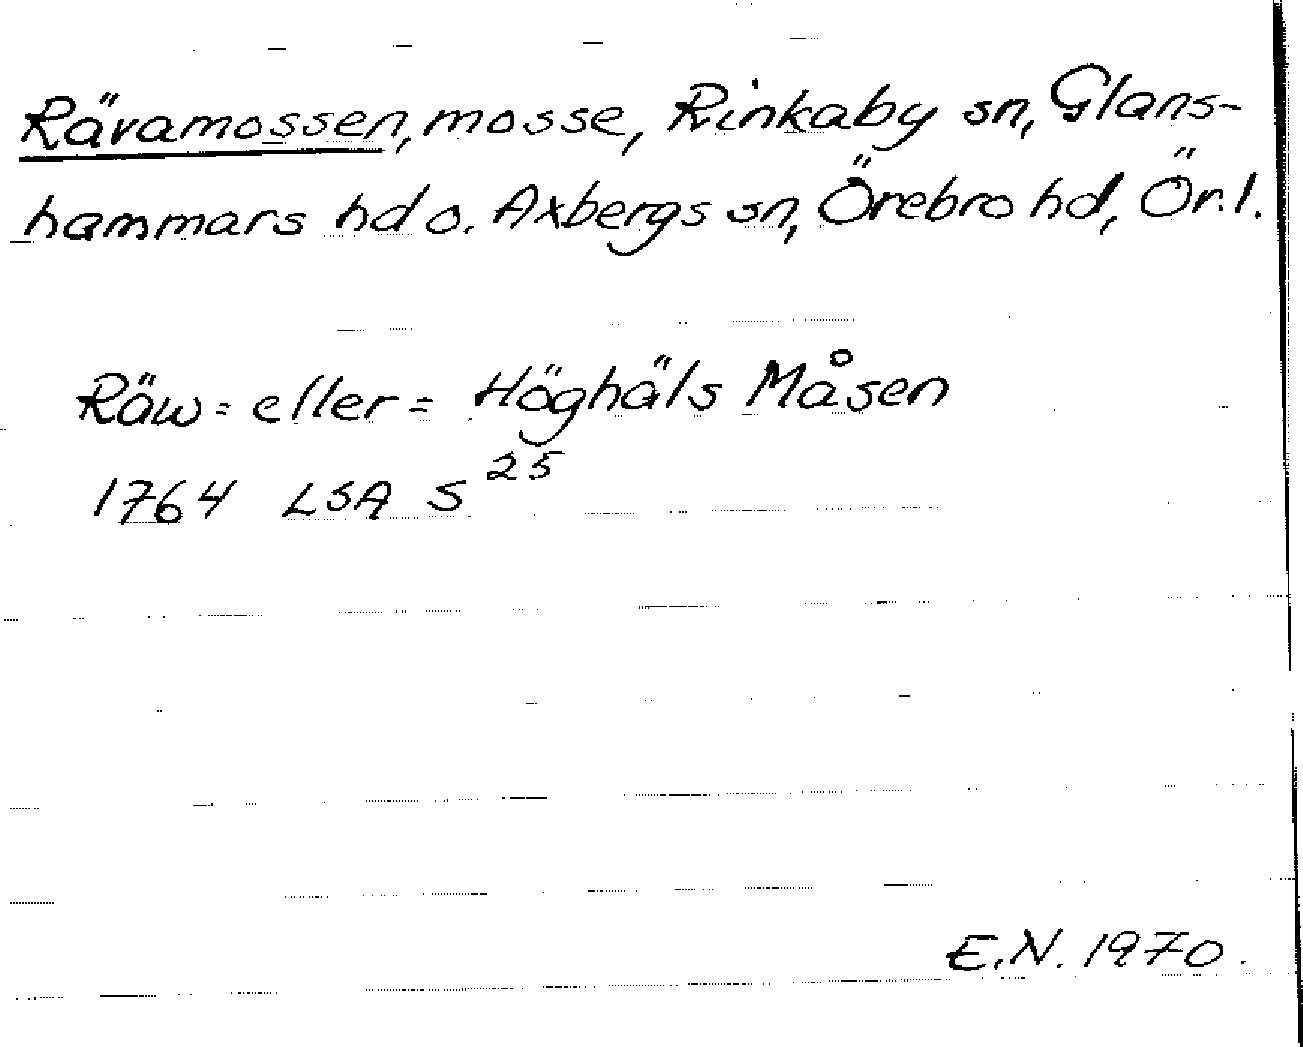 Rävamossen, mosse, Rinkaby sn, Glans-
hammars hd o. Axbergs sn, Örebro hd, Ör. l.
Räw= eller = Höghäls Måsen
1764 LSA S 25
E.N. 1970.